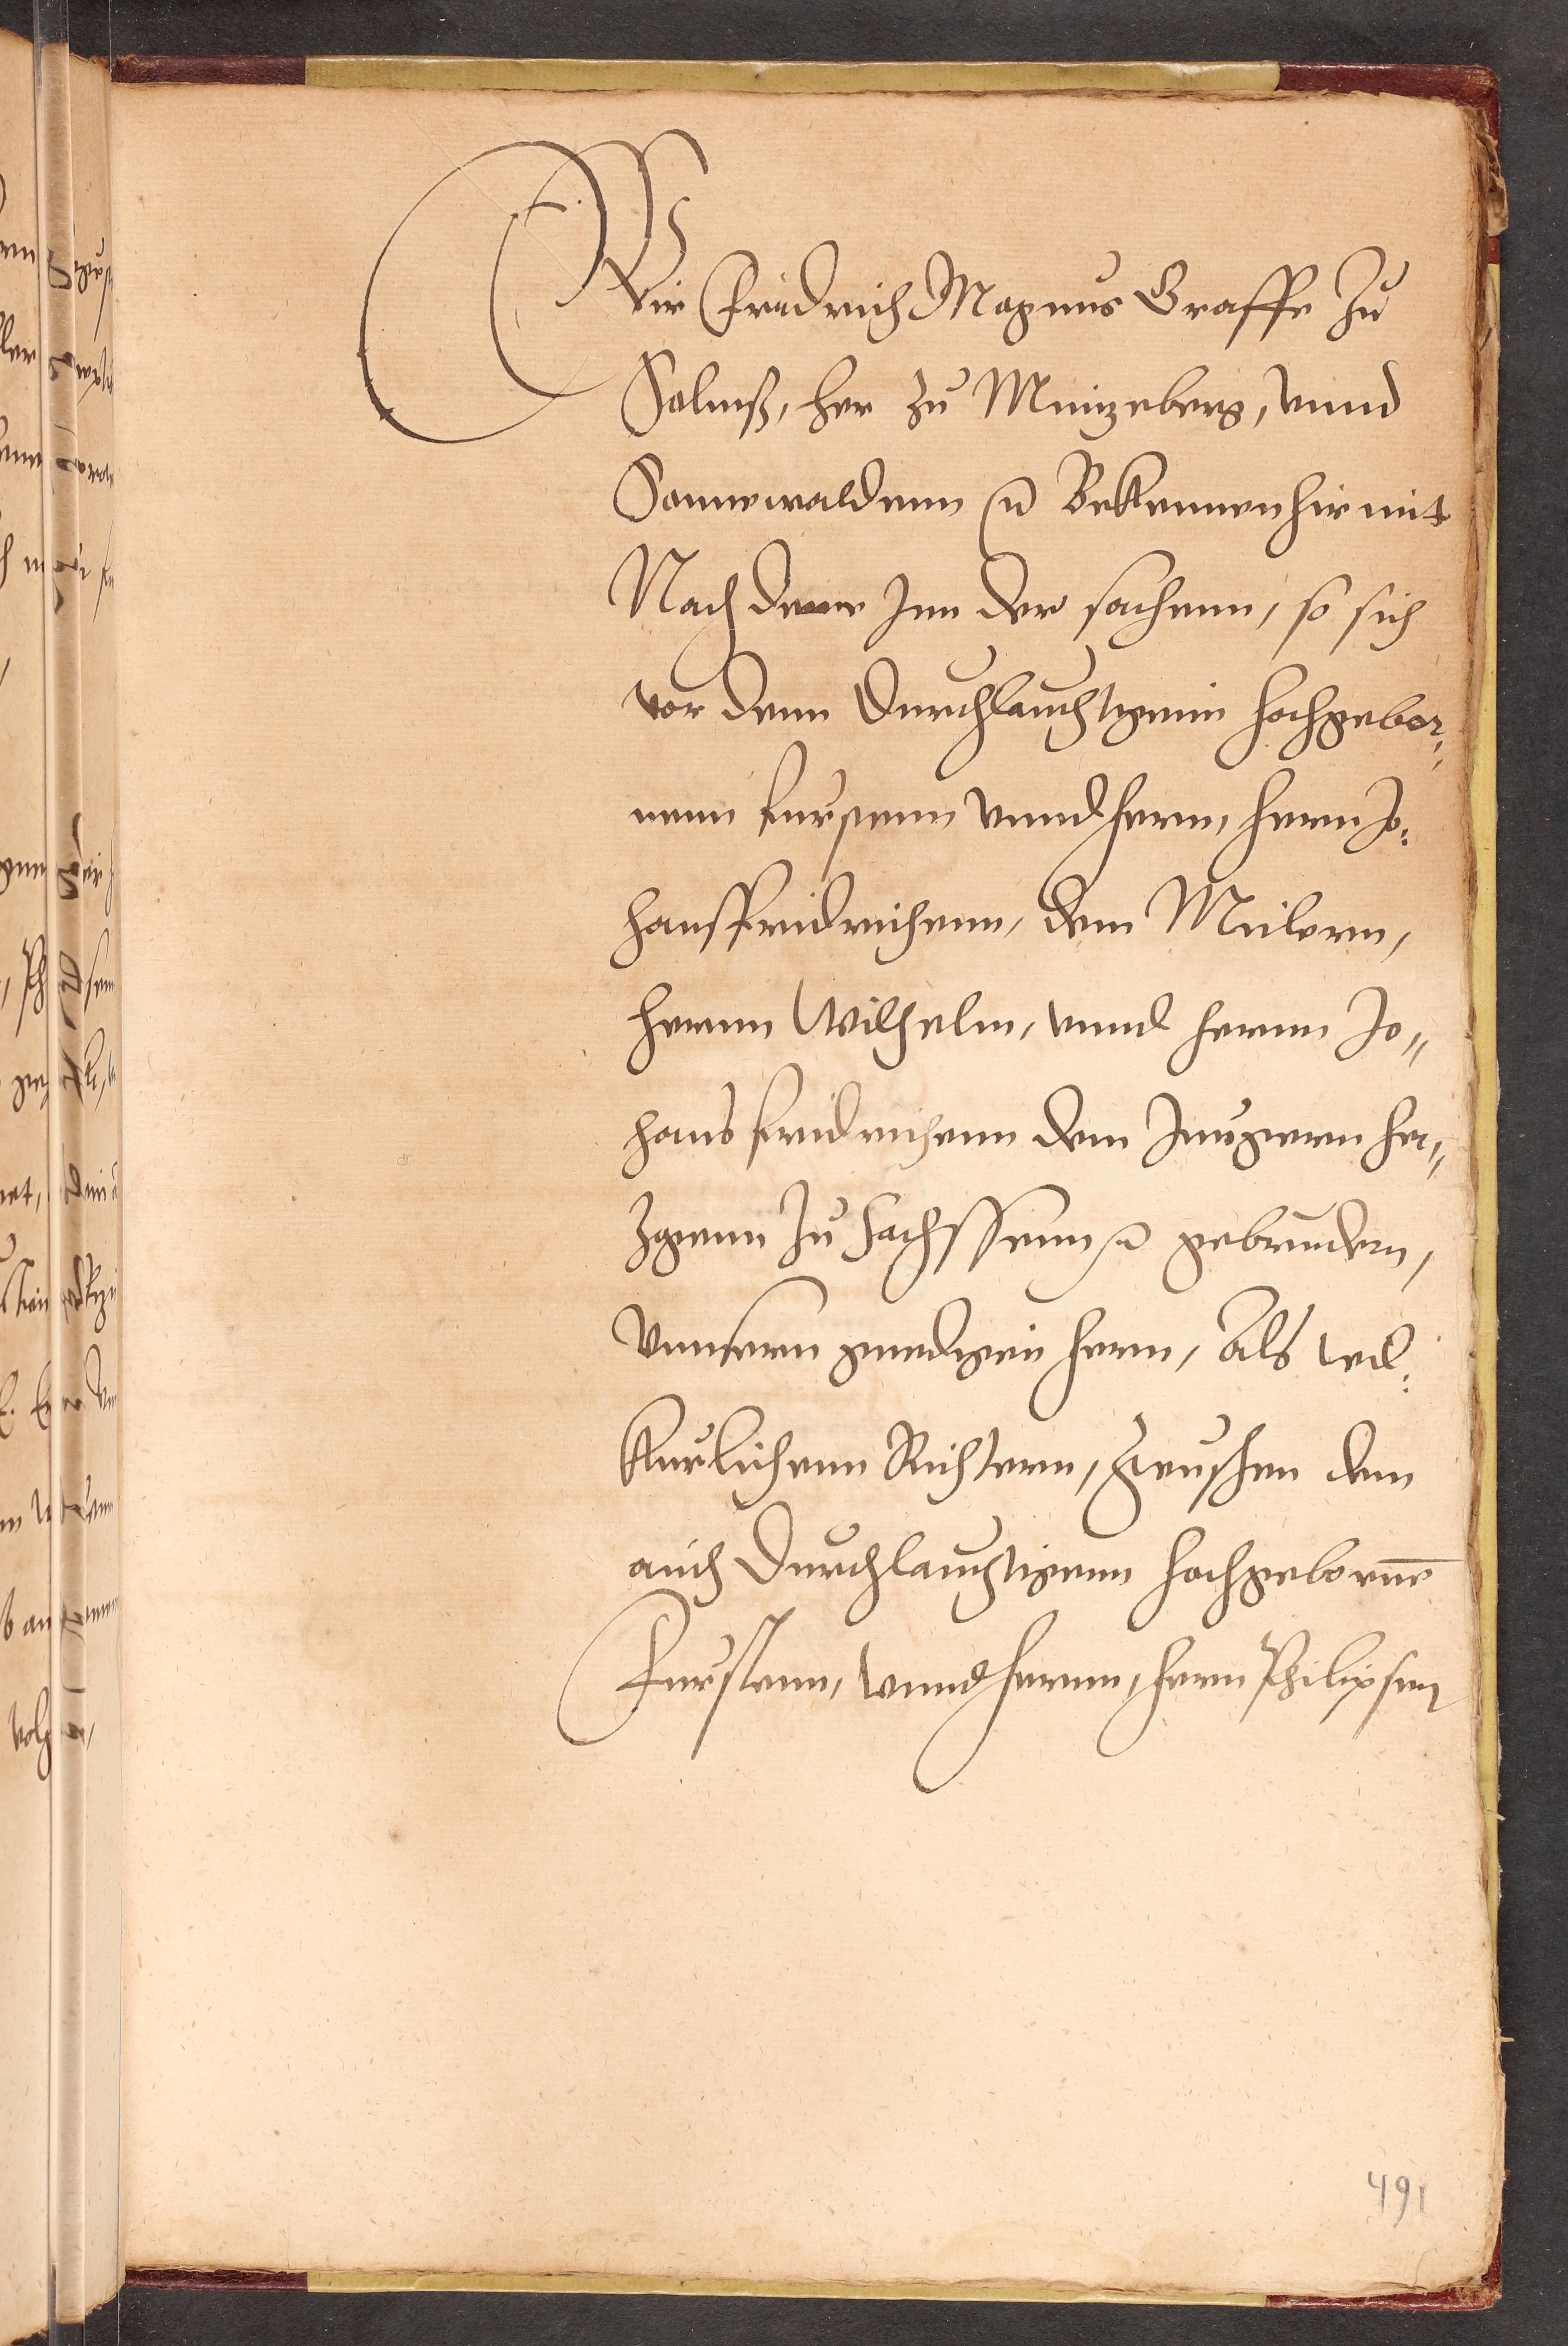 Wir Fridrich Magnus Graffe Zu
Solmß, her zu Mintzeberg, vnnd
Sonnewaldenn etc Bekennen hir mit
Nach deme Inn der sachenn, so sich
vor denn Durchlauchtigenn hochgebor„
nenn furstenn vnnd herrn, hernn Jo:
hansfridrichenn, dem Mitlern,
hernnn Wilhelm, vnnd hernnn Jo„
hans fridrichenn dem Jungern her„
zogenn zu Sachssenn etc gebrudern,
Vnnsern gnedigen herrn, Als wil:
kurlichenn Richtern, zwuschen dem
auch Durchlauchtigenn hochgebornn̄
Furstenn, vnnd hernnn, hern Philipsen
491